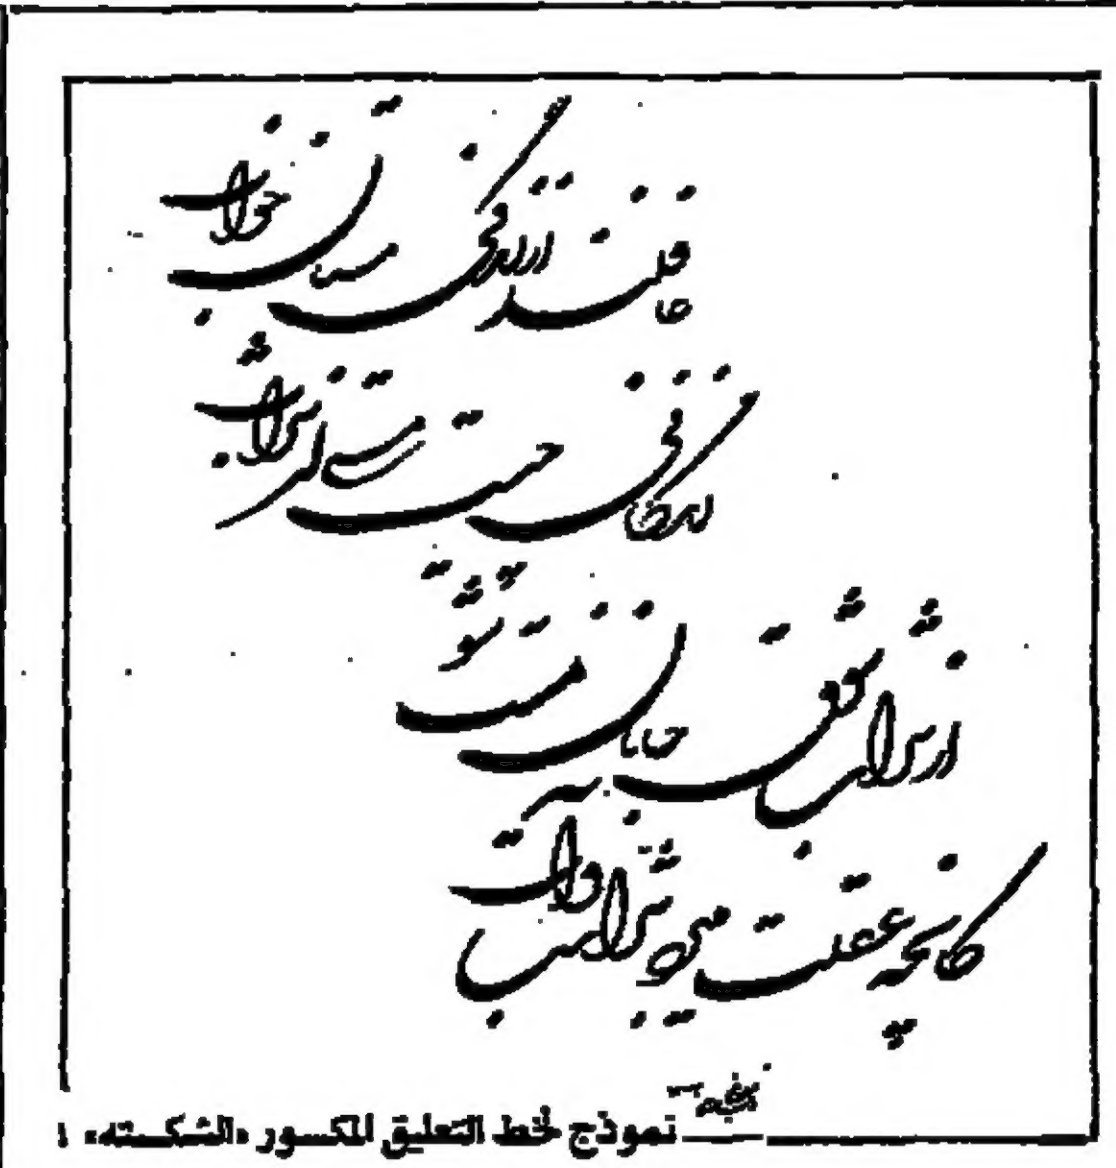 غافلند از زندگی مستان خواب
زندگانی چیست مستی از شراب
از شراب شوق جانان مست شو
کانچه عقلت می برد شر است و آب
نموذج لخط التعليق المكسور «الشكسته» :